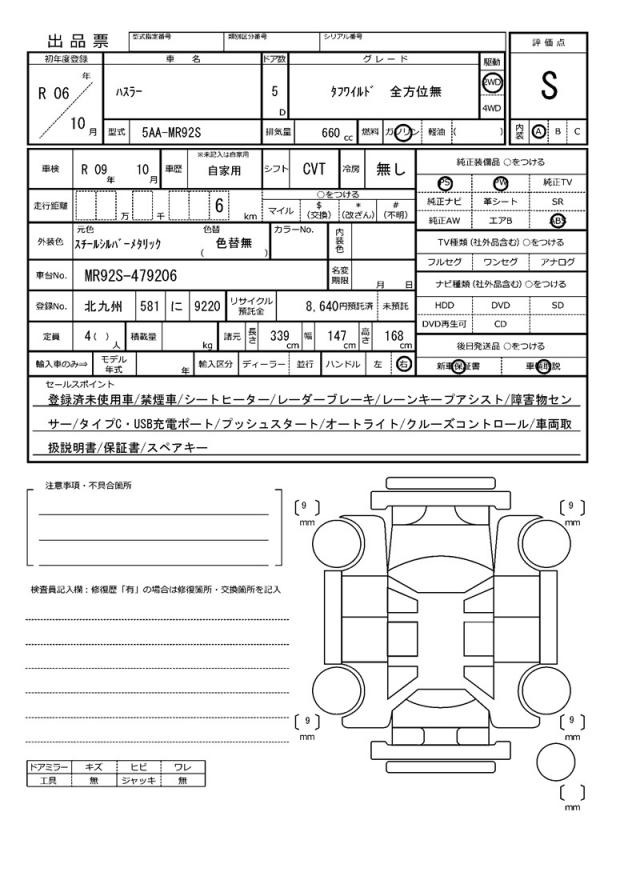 出品票 型式指定番号 類別区分番号 シリアル番号 評価点
初年度登録 車名 ドア数 グレード 駆動
R 06 年 ハスラー 5 D タフワイルド 全方位無 2WD S
4WD
10 月 型式 5AA-MR92S 排気量 660 cc 燃料 ガソリン 軽油 ( ) 内装 A B C
車検 R 09 年 10 月 車歴 ※未記入は自家用 自家用 シフト CVT 冷房 無し 純正装備品 ○をつける
PS PW 純正TV
走行距離 万 千 6 km ○をつける 純正ナビ 革シート SR
マイル $(交換) *(改ざん) #(不明) 純正AW エアB ABS
外装色 元色 スチールシルバーメタリック 色替 ( 色替無 ) カラーNo. 内装色 TV種類(社外品含む)○をつける
フルセグ ワンセグ アナログ
車台No. MR92S-479206 名変期限 月 日 ナビ種類(社外品含む)○をつける
登録No. 北九州 581 に 9220 リサイクル預託金 8,640円預託済 未預託 HDD DVD SD
DVD再生可 CD
定員 4( )人 積載量 kg 諸元 長さ 339cm 幅 147cm 高さ 168cm 後日発送品 ○をつける
輸入車のみ⇒ モデル年式 年 輸入区分 ディーラー 並行 ハンドル 左 右 新車保証書 車輌取説
セールスポイント
登録済未使用車/禁煙車/シートヒーター/レーダーブレーキ/レーンキープアシスト/障害物セン
サー/タイプC・USB充電ポート/プッシュスタート/オートライト/クルーズコントロール/車両取
扱説明書/保証書/スペアキー
注意事項・不具合箇所
検査員記入欄：修復歴「有」の場合は修復箇所・交換箇所を記入
〔 9 〕mm 〔 9 〕mm
〔 9 〕mm 〔 9 〕mm
〔 〕mm
ドアミラー キズ ヒビ ワレ
工具 無 ジャッキ 無